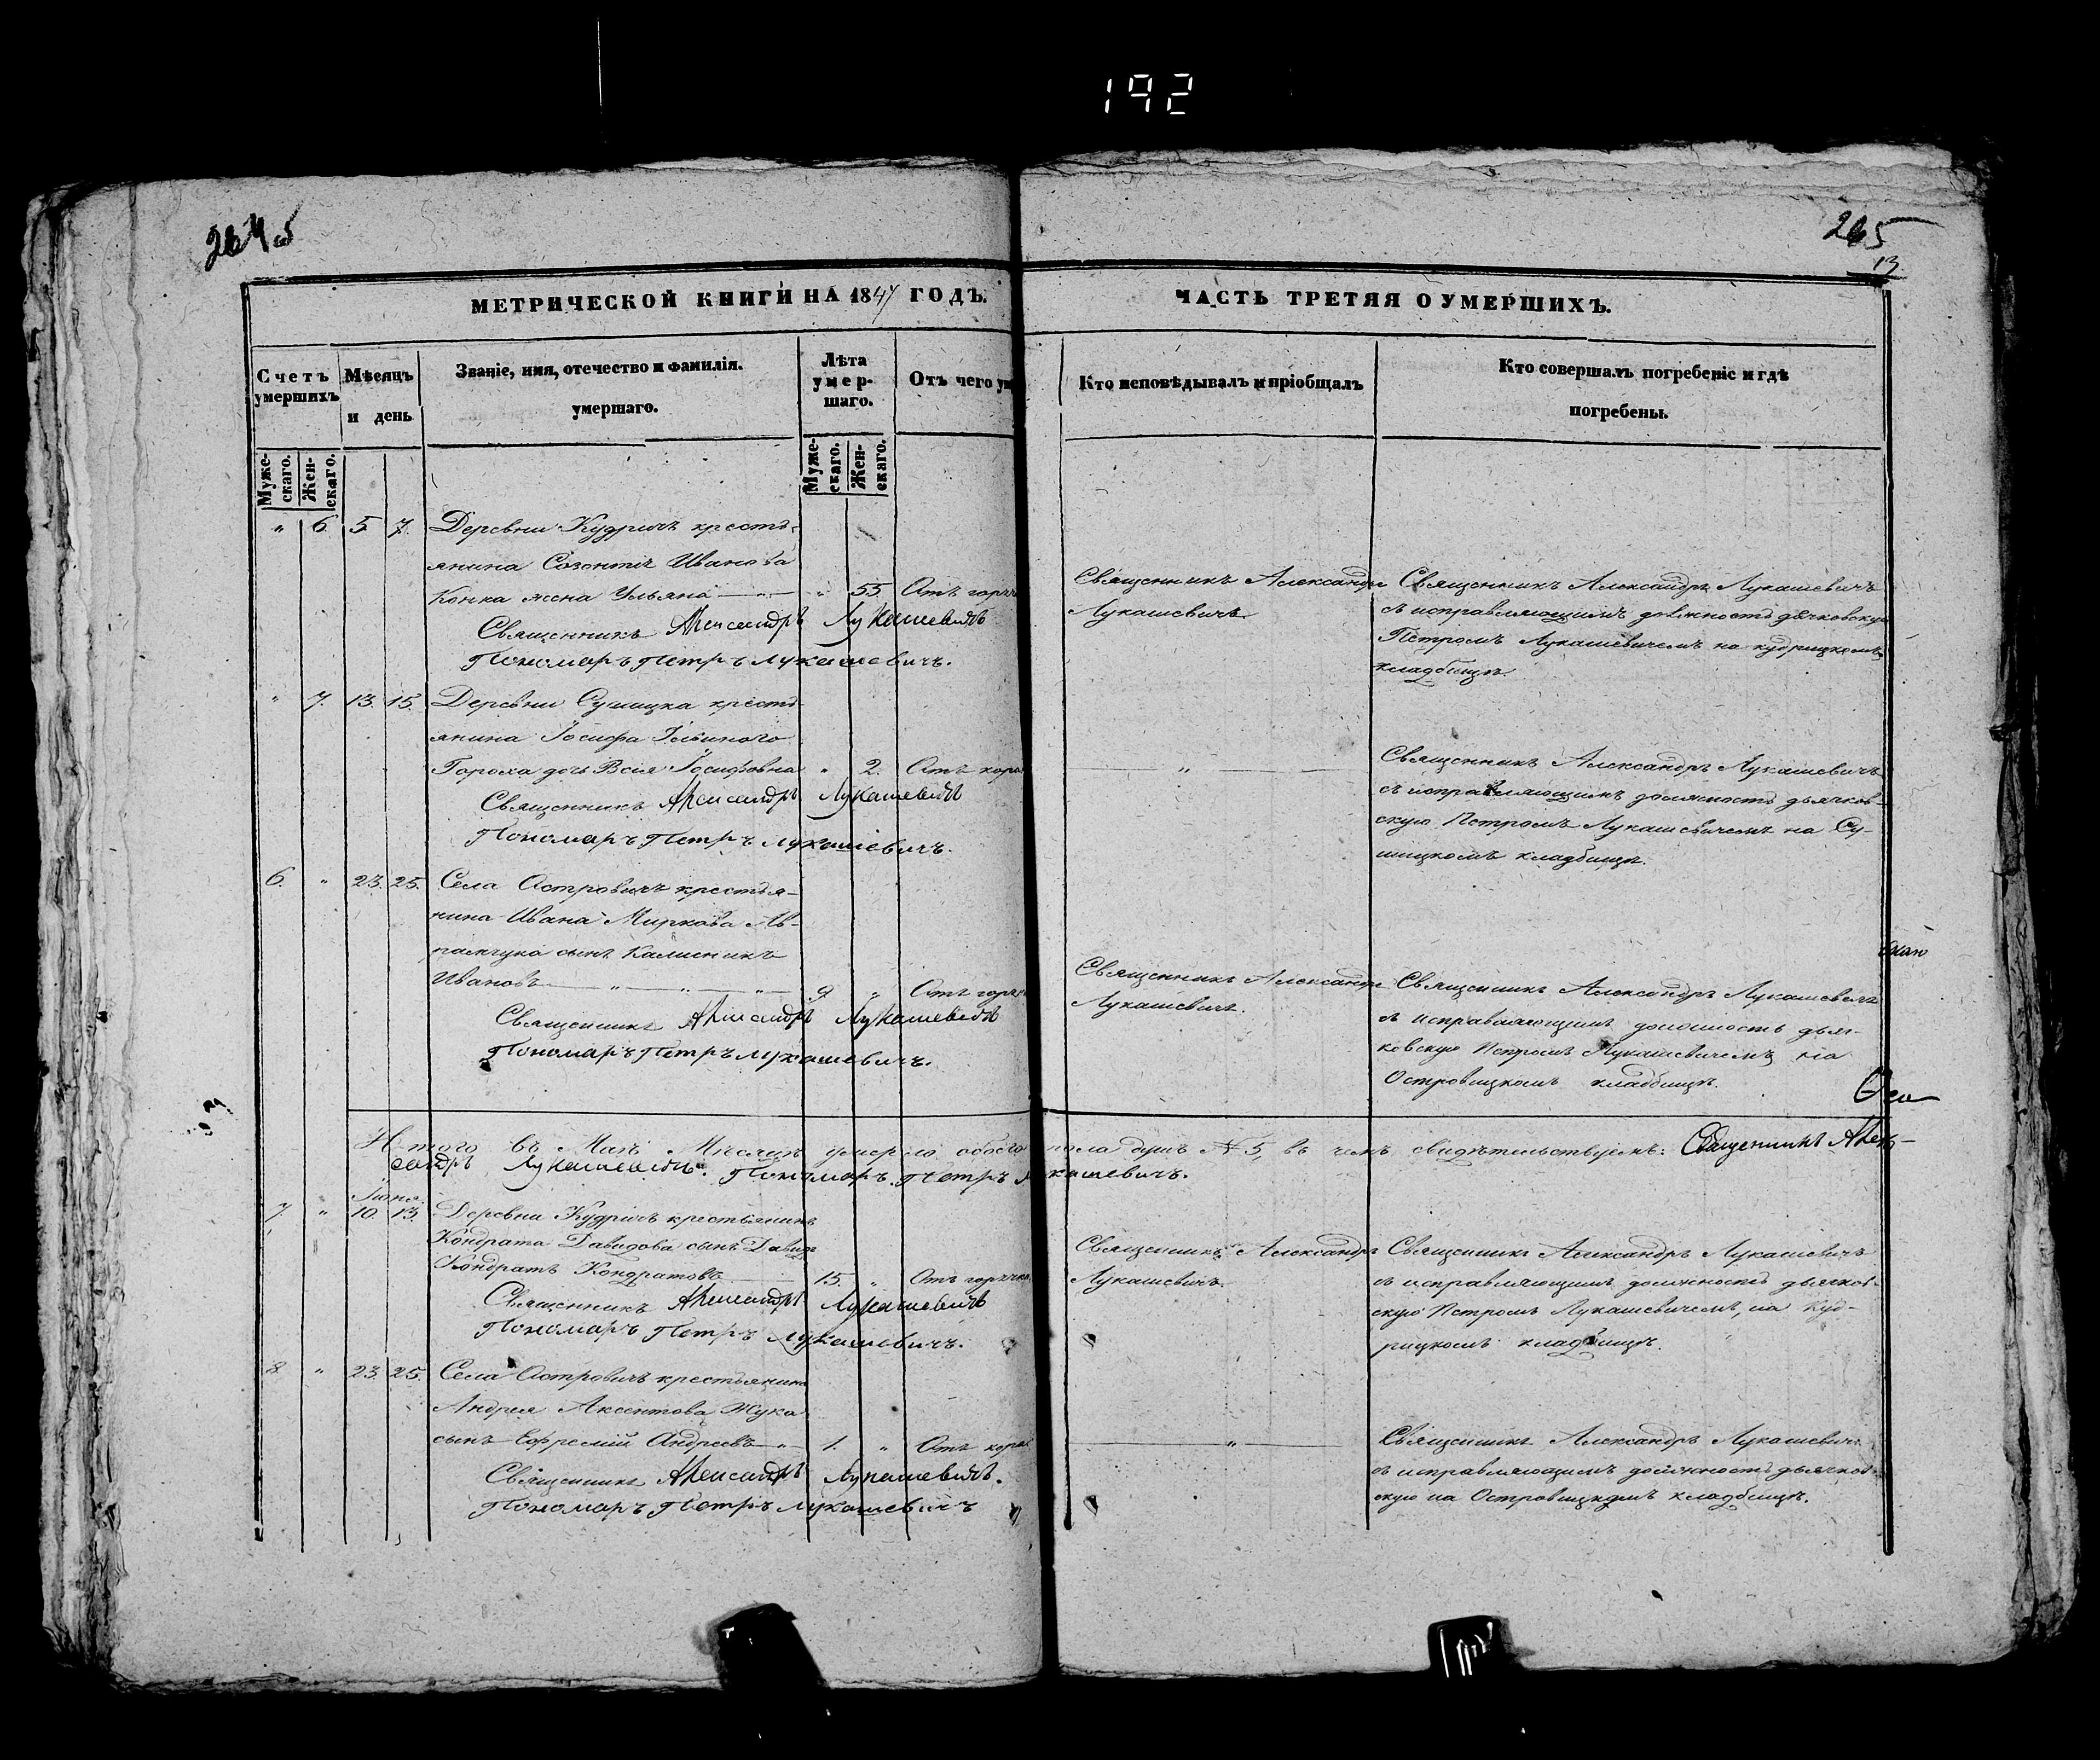 192
265
13
МЕТРИЧЕСКОЙ КНИГИ НА 1847 ГОДЪ.
Счетъ умершихъ
Мѣсяцъ и день
Званіе, имя, отечество и фамилія.
умершаго.
Лѣта умер-шаго.
Отъ чего
Муже-скаго.
Жен-скаго.
Муже-скаго.
Жен-скаго.
" 6. 5 7. Деревни Кудричъ кресть-
янина Созонтія Иванова
Конка жена Ульяна " 55. Отъ горяч
Священникъ Александръ Лукашевичъ
Пономаръ Петръ Лукашевичъ.
" 7. 13. 15. Деревни Сушицка кресть-
янина Іосифа
Гороха дочь Іосифовна " 2. Отъ кори
Священникъ Александръ Лукашевичъ
Пономаръ Петръ Лукашевичъ.
6. " 23. 25. Села Островичъ крестья-
нина Ивана Миркова Ав-
рамчука сынъ Калиникъ
Ивановъ " " " 9. " Отъ горяч
Священникъ Александръ Лукашевичъ
Пономаръ Петръ Лукашевичъ.
Итого въ Маѣ Мѣсяцѣ умерло обоего
сандръ Лукашевичъ. Пономаръ Петръ Лу
Іюня.
7. " 10. 13. Деревни Кудричъ крестьянина
Кондрата Давидова сынъ
Кондратъ Кондратовъ 15. " Отъ горячк
Священникъ Александръ Лукашевичъ
Пономаръ Петръ Лукашевичъ.
8. " 23. 25. Села Островичъ крестьянина
Андрея Аксентова Жука
сынъ Ефремій Андреевъ " 1. " Отъ кори
Священникъ Александръ Лукашевичъ.
Пономаръ Петръ Лукашевичъ
ЧАСТЬ ТРЕТЯЯ О УМЕРШИХЪ.
Кто исповѣдывалъ и пріобщалъ
Кто совершалъ погребеніе и гдѣ
погребены.
Священникъ Александръ
Лукашевичъ
Священникъ Александръ Лукашевичъ
съ исправляющимъ должность дьячковскую
Петромъ Лукашевичемъ на кудрицкомъ
кладбищѣ.
"
Священникъ Александръ Лукашевичъ
съ исправляющимъ должность дьячков-
скую Петромъ Лукашевичемъ на Су-
шицкомъ кладбищѣ.
Священникъ Александръ
Лукашевичъ.
Священникъ Александръ Лукашевичъ
съ исправляющимъ должность дьяч-
ковскую Петромъ Лукашевичемъ на
Островицкомъ кладбищѣ.
пола душъ № 5, въ чемъ свидѣтельствуемъ: Священникъ Алек-
кашевичъ.
Священникъ Александръ
Лукашевичъ.
Священникъ Александръ Лукашевичъ
съ исправляющимъ должность дьячков-
скую Петромъ Лукашевичемъ, на Куд-
рицкомъ кладбищѣ.
"
Священникъ Александръ Лукашевичъ
съ исправляющимъ должность дьячков-
скую на Островицкомъ кладбищѣ.